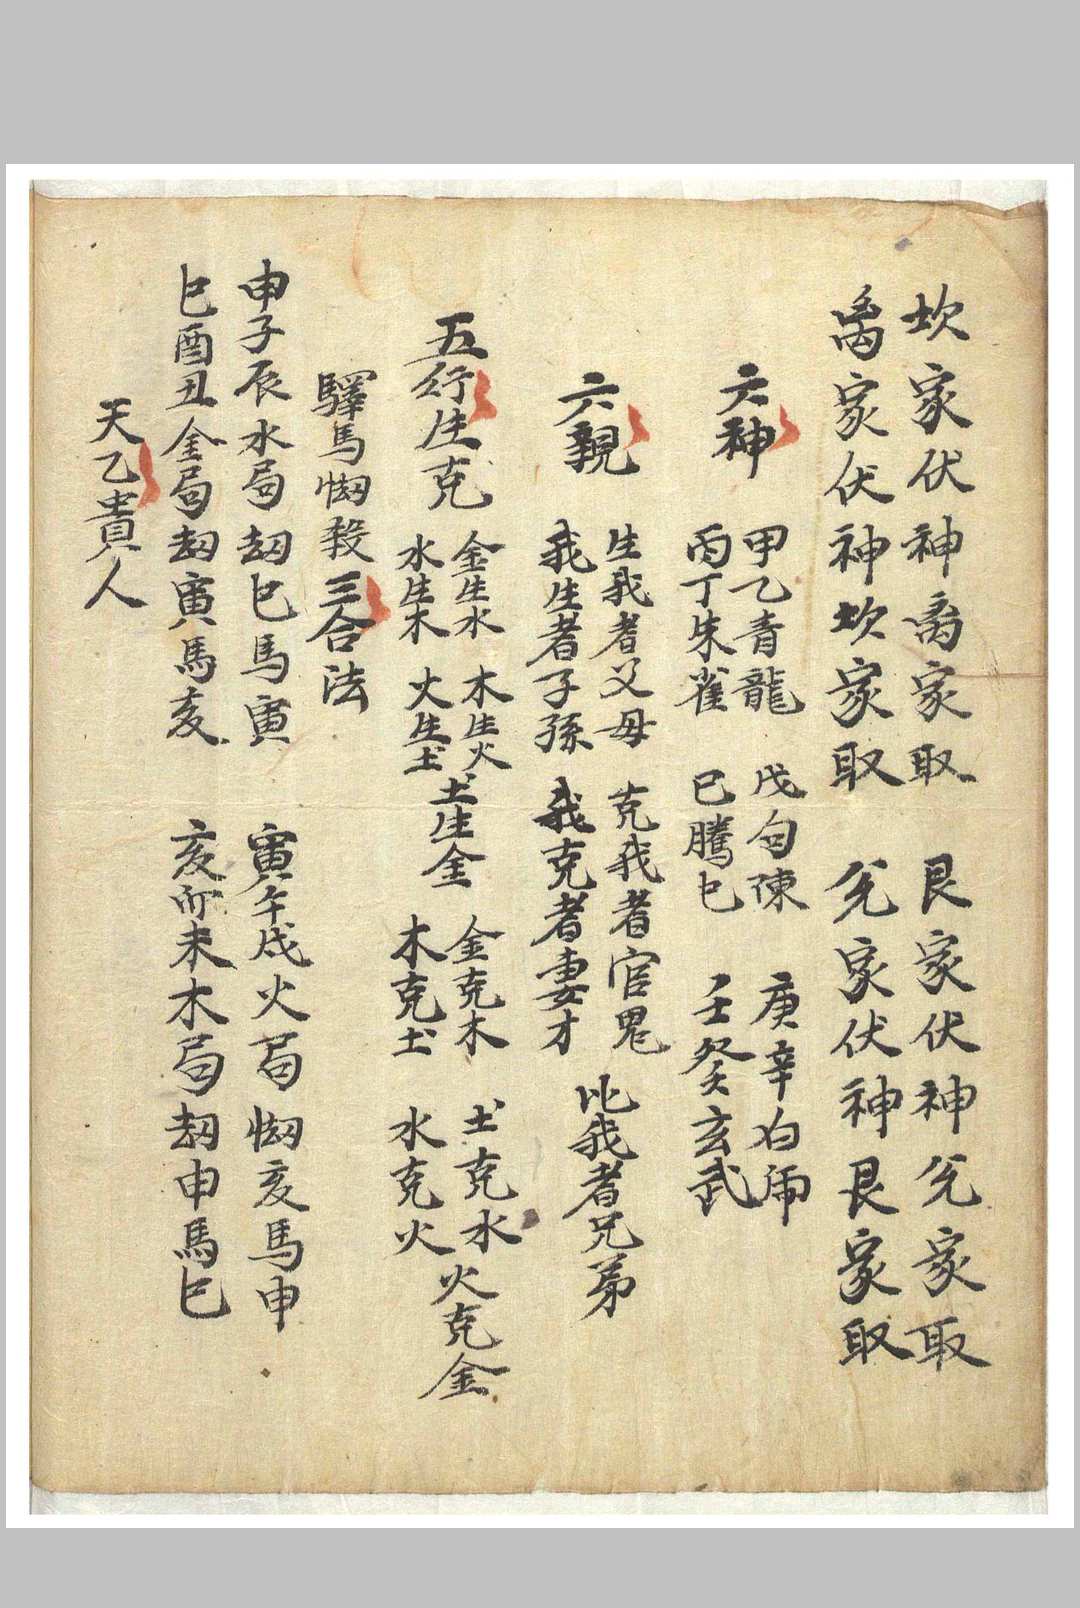 坎家伏神离家取　艮家伏神兊家取
离家伏神坎家取　兊家伏神艮家取
六神
甲乙青龍　戊勾陳　庚辛白虎
丙丁朱雀　巳騰巳　壬癸玄武
六親
生我者父母　克我者官鬼
我生者子孫　我克者妻才
比我者兄弟
五行生克
金生水　木生火
水生木　火生土
土生金
金克木　土克水
木克土　水克火
火克金
驛馬刼殺三合法
申子辰水局刼巳馬寅　寅午戍火局刼亥馬申
巳酉丑金局刼寅馬亥　亥卯未木局刼申馬巳
天乙貴人